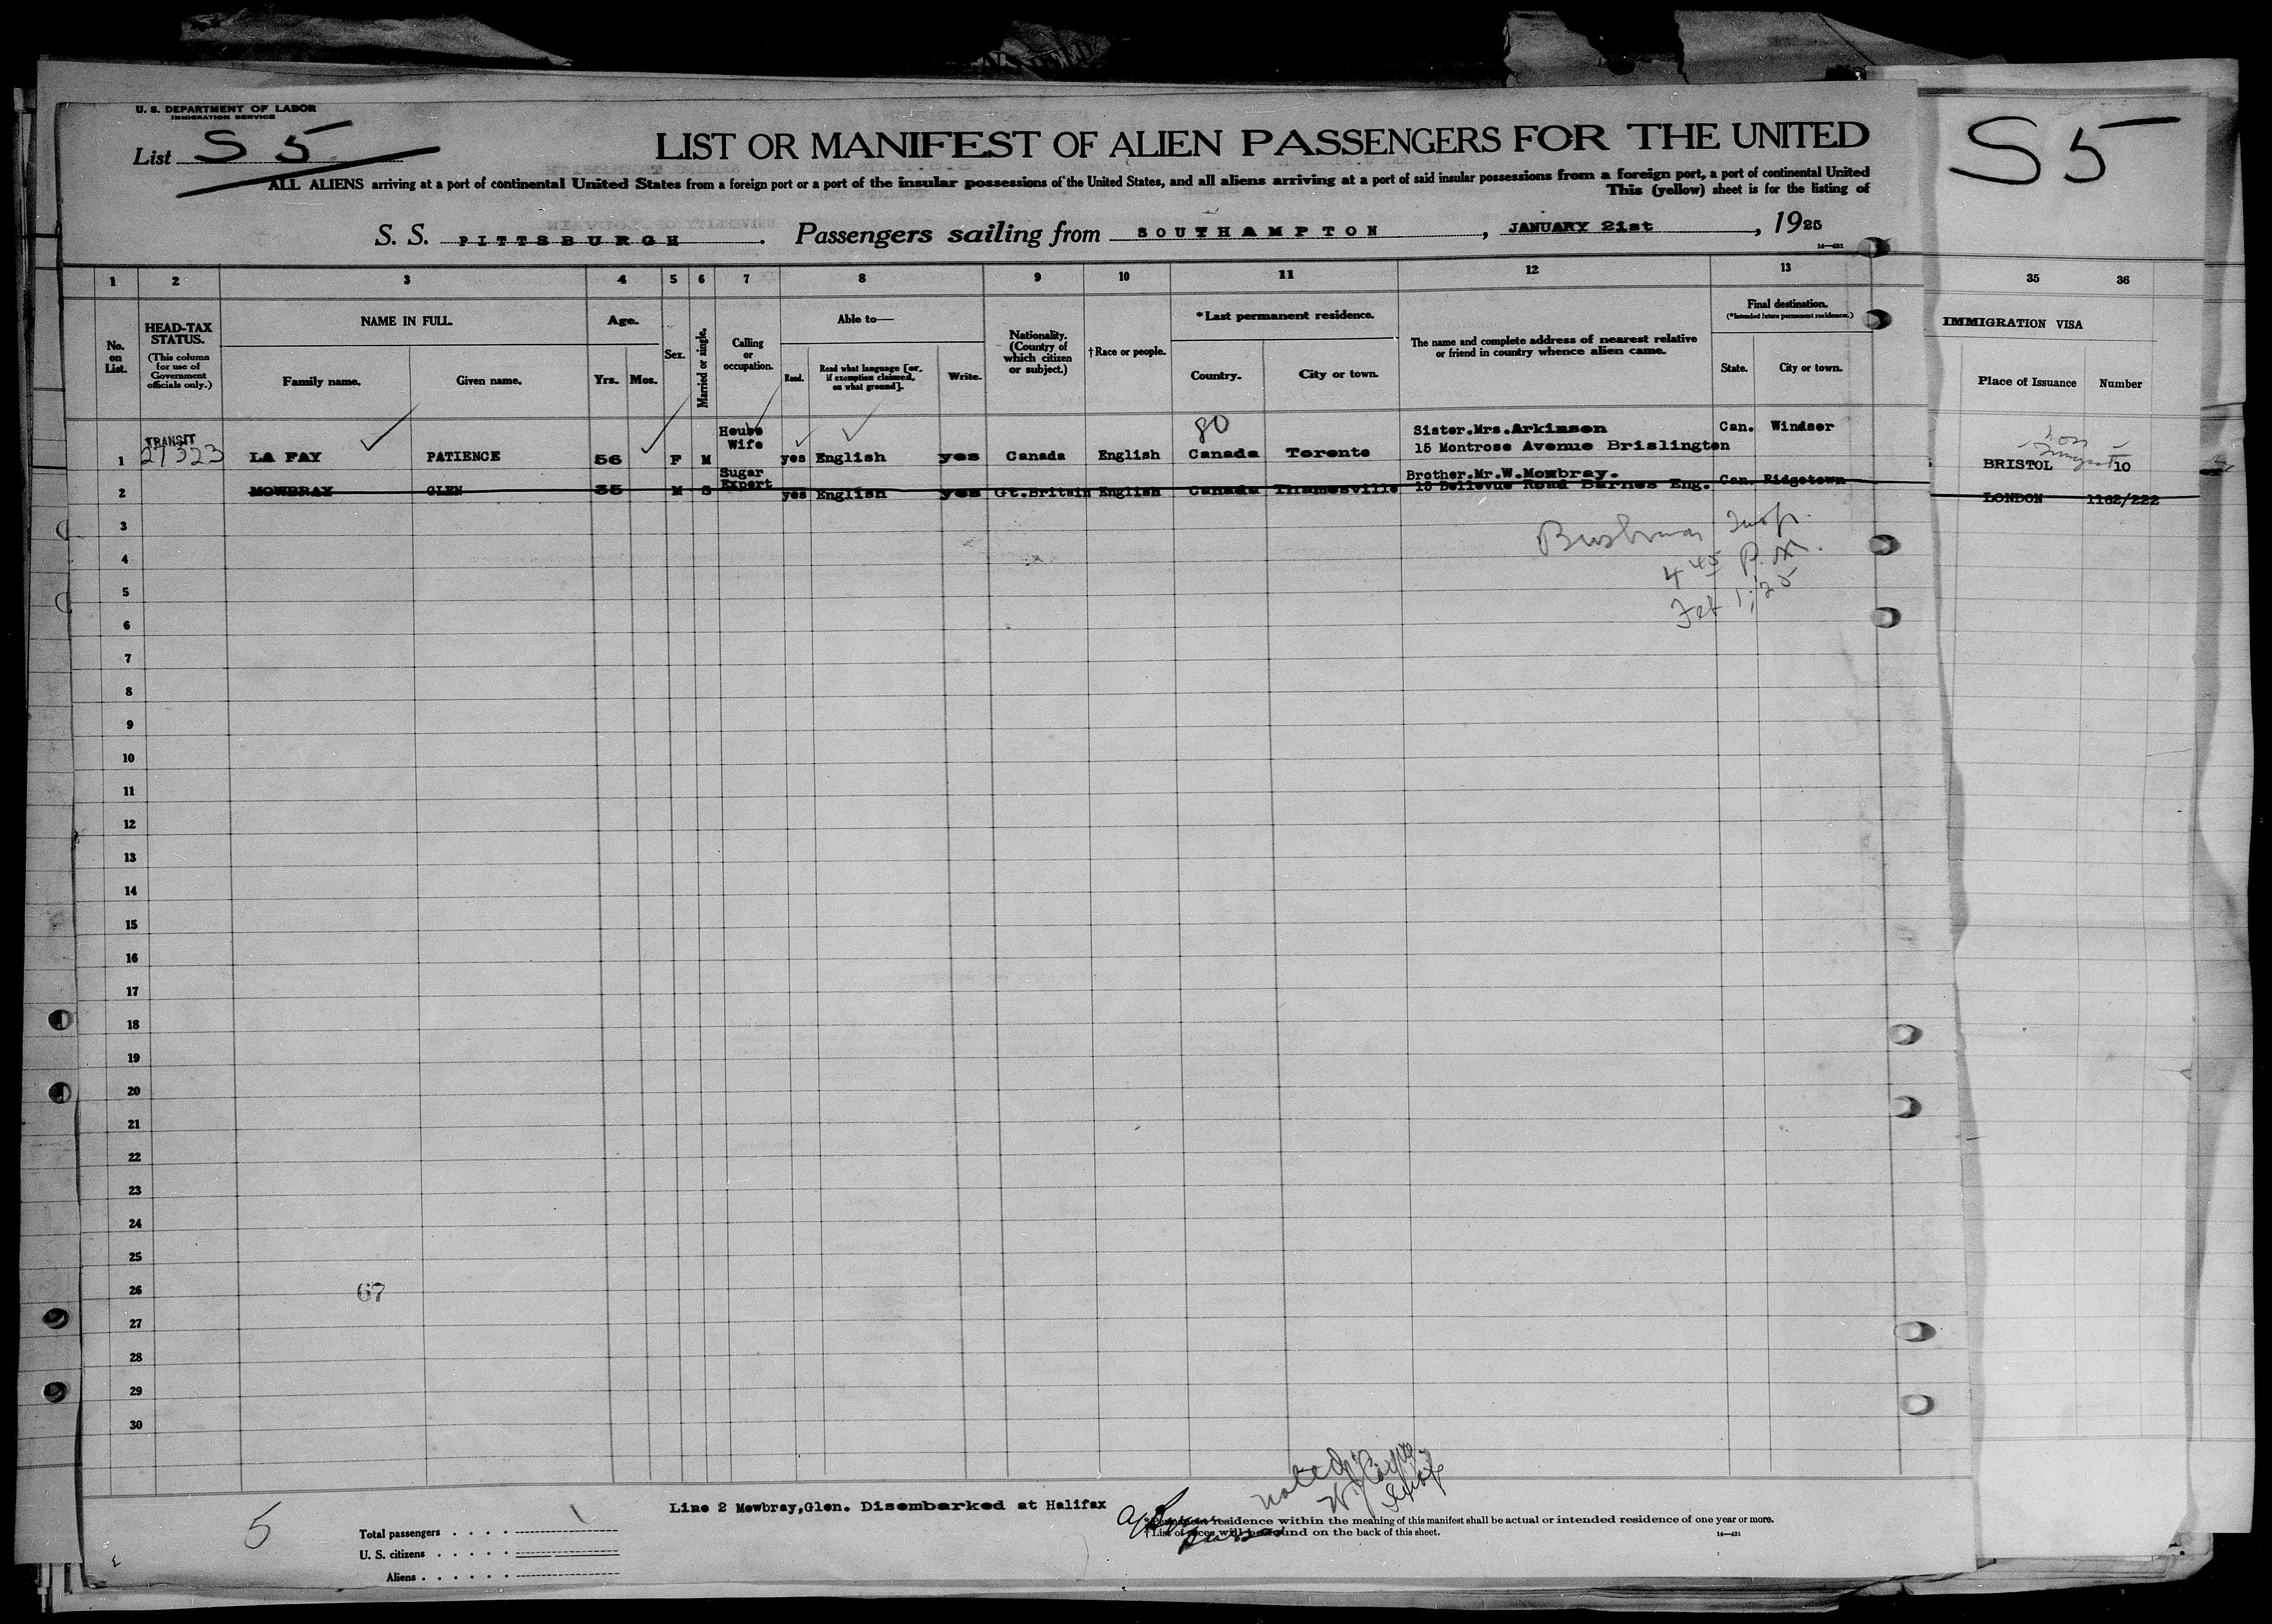 U. S. DEPARTMENT OF LABOR
IMMIGRATION SERVICE
List S 5
LIST OR MANIFEST OF ALIEN PASSENGERS FOR THE UNITED
S5
ALL ALIENS arriving at a port of continental United States from a foreign port or a port of the insular possessions of the United States, and all aliens arriving at a port of said insular possessions from a foreign port, a port of continental United
This (yellow) sheet is for the listing of
S. S. PITTSBURGH. Passengers sailing from SOUTHAMPTON, JANUARY 21st, 1925
14—431
1 2 3 4 5 6 7 8 9 10 11 12 13 35 36
No. on List.
HEAD-TAX STATUS.
(This column for use of Government officials only.)
NAME IN FULL.
Family name. Given name.
Age.
Yrs. Mos.
Sex.
Married or single.
Calling or occupation.
Able to—
Read. Read what language [or, if exemption claimed, on what ground]. Write.
Nationality. (Country of which citizen or subject.)
†Race or people.
*Last permanent residence.
Country. City or town.
The name and complete address of nearest relative or friend in country whence alien came.
Final destination.
(*Intended future permanent residence.)
State. City or town.
IMMIGRATION VISA
Place of Issuance Number
80
House Sister.Mrs.Arkinson Can. Windsor
TRANSIT Wife 15 Montrose Avenue Brislington
1 27323 LA FAY PATIENCE 56 F M yes English yes Canada English Canada Toronto BRISTOL 10
Sugar Brother.Mr.W.Mowbray.
2 MOWBRAY GLEN 35 M S Expert yes English yes Gt.Britain English Canada Thamesville 16 Bellevue Road Barnes Eng. Can. Ridgetown LONDON 1162/222
3
Insp.
4
4 45 P.M.
5
Feb 1, 25
6
7
8
9
10
11
12
13
14
15
16
17
18
19
20
21
22
23
24
25
26 67
27
28
29
30
noted
Line 2 Mowbray,Glen. Disembarked at Halifax
5
Total passengers . . . . 1
U. S. citizens . . . . .
Aliens . . . . . .
*Permanent residence within the meaning of this manifest shall be actual or intended residence of one year or more.
†List of races will be found on the back of this sheet.
14—431